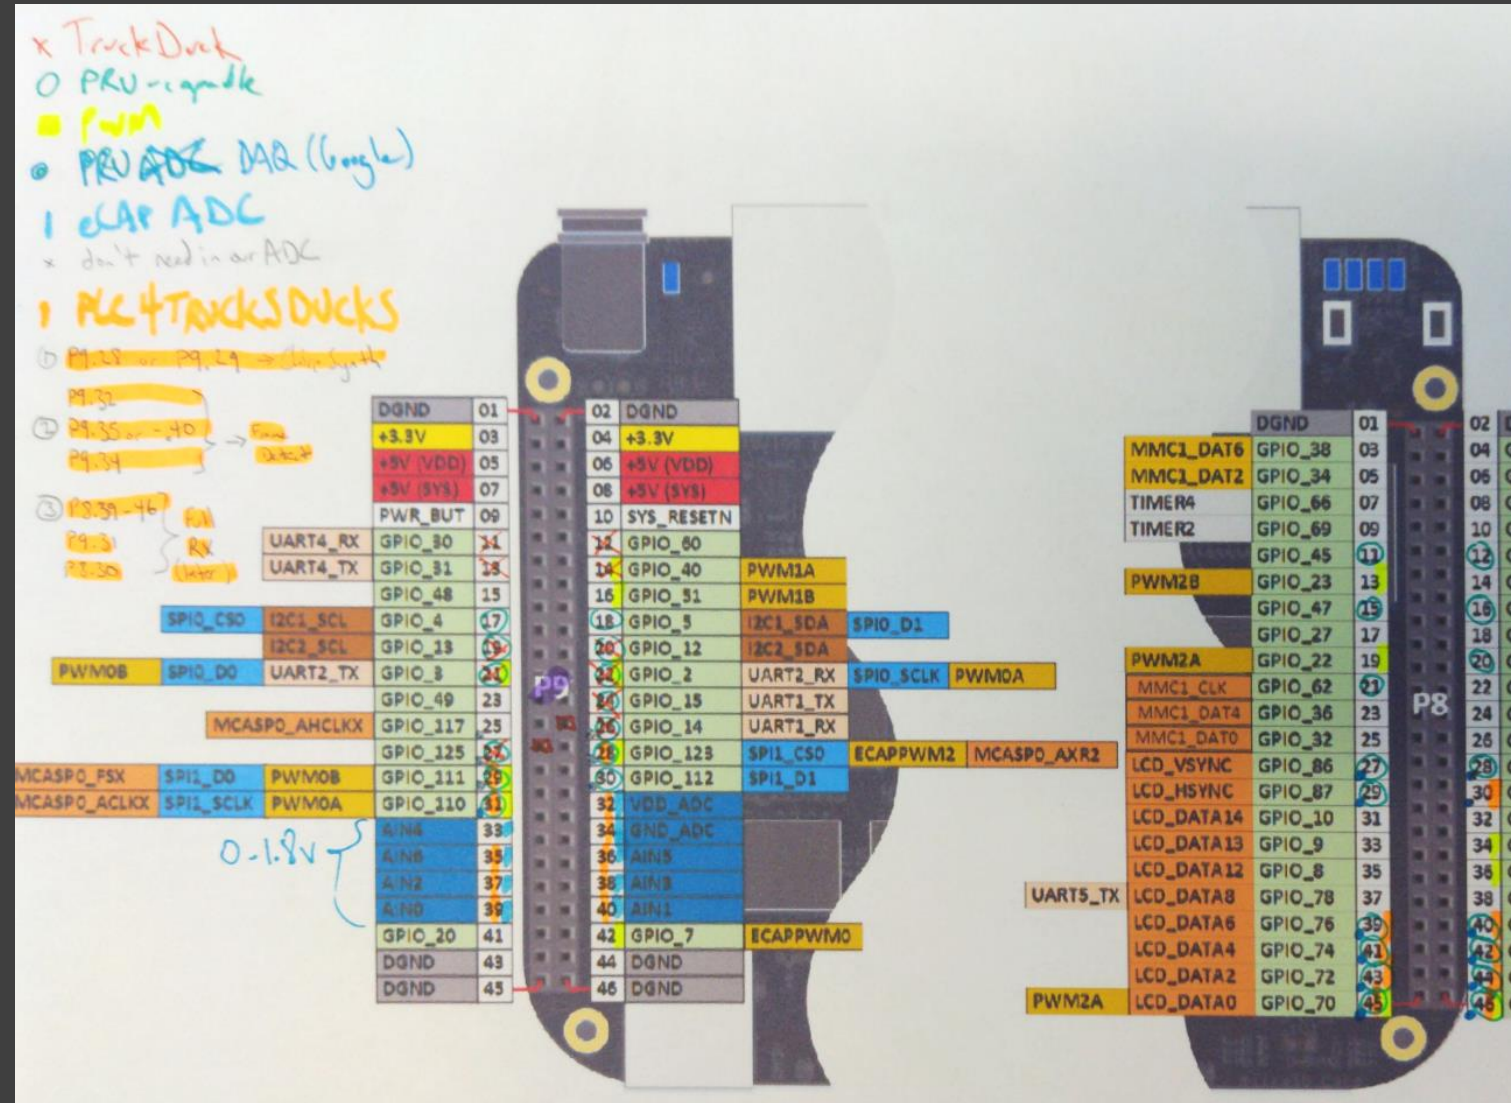 x TruckDuck
O PRU-capable
PWM
PRU ADC DAQ (Google)
eCAP ADC
x don't need in our ADC
PLC4TRUCKSDUCKS
① P9.28 or P9.29 →
P9.32
② P9.35 or -.40 → Frame
P9.34 Detect
③ P8.39-46 Full
P9.31 RX
P8.30
DGND 01 02 DGND
+3.3V 03 04 +3.3V
+5V (VDD) 05 06 +5V (VDD)
+5V (SYS) 07 08 +5V (SYS)
PWR_BUT 09 10 SYS_RESETN
UART4_RX GPIO_30 11 12 GPIO_60
UART4_TX GPIO_31 13 14 GPIO_40 PWM1A
GPIO_48 15 16 GPIO_51 PWM1B
SPI0_CS0 I2C1_SCL GPIO_4 17 18 GPIO_5 I2C1_SDA SPI0_D1
I2C2_SCL GPIO_13 19 20 GPIO_12 I2C2_SDA
PWM0B SPI0_D0 UART2_TX GPIO_3 21 22 GPIO_2 UART2_RX SPI0_SCLK PWM0A
GPIO_49 23 24 GPIO_15 UART1_TX
MCASP0_AHCLKX GPIO_117 25 26 GPIO_14 UART1_RX
GPIO_125 27 28 GPIO_123 SPI1_CS0 ECAPPWM2 MCASP0_AXR2
MCASP0_FSX SPI1_D0 PWM0B GPIO_111 29 30 GPIO_112 SPI1_D1
MCASP0_ACLKX SPI1_SCLK PWM0A GPIO_110 31 32 VDD_ADC
AIN4 33 34 GND_ADC
AIN6 35 36 AIN5
AIN2 37 38 AIN3
AIN0 39 40 AIN1
GPIO_20 41 42 GPIO_7 ECAPPWM0
DGND 43 44 DGND
DGND 45 46 DGND
0-1.8V
P9
DGND 01 02
MMC1_DAT6 GPIO_38 03 04
MMC1_DAT2 GPIO_34 05 06
TIMER4 GPIO_66 07 08
TIMER2 GPIO_69 09 10
GPIO_45 11 12
PWM2B GPIO_23 13 14
GPIO_47 15 16
GPIO_27 17 18
PWM2A GPIO_22 19 20
MMC1_CLK GPIO_62 21 22
MMC1_DAT4 GPIO_36 23 24
MMC1_DAT0 GPIO_32 25 26
LCD_VSYNC GPIO_86 27 28
LCD_HSYNC GPIO_87 29 30
LCD_DATA14 GPIO_10 31 32
LCD_DATA13 GPIO_9 33 34
LCD_DATA12 GPIO_8 35 36
UART5_TX LCD_DATA8 GPIO_78 37 38
LCD_DATA6 GPIO_76 39 40
LCD_DATA4 GPIO_74 41 42
LCD_DATA2 GPIO_72 43 44
PWM2A LCD_DATA0 GPIO_70 45 46
P8